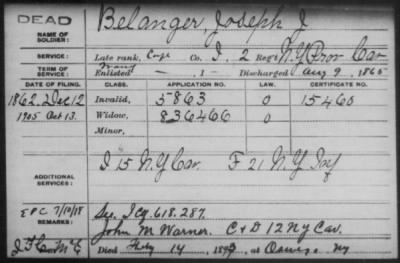 DEAD
NAME OF SOLDIER:
Belanger, Joseph J
SERVICE:
Late rank, Corp Co. I, 2 Reg't N.Y. Prov Cav
TERM OF SERVICE:
Enlisted — , 1 — Discharged Aug 9, 1865
DATE OF FILING. CLASS. APPLICATION NO. LAW. CERTIFICATE NO.
1862. Dec 12 Invalid, 5863 0 15460
1905 Oct 13. Widow, 836466 0
Minor,
ADDITIONAL SERVICES:
I 15 N.Y. Cav. F 21 N.Y. Inf
EPC 7/10/18
REMARKS:
See Icq. 618.287.
John M Warner. C & D 12 NY Cav.
Died 14, at NY